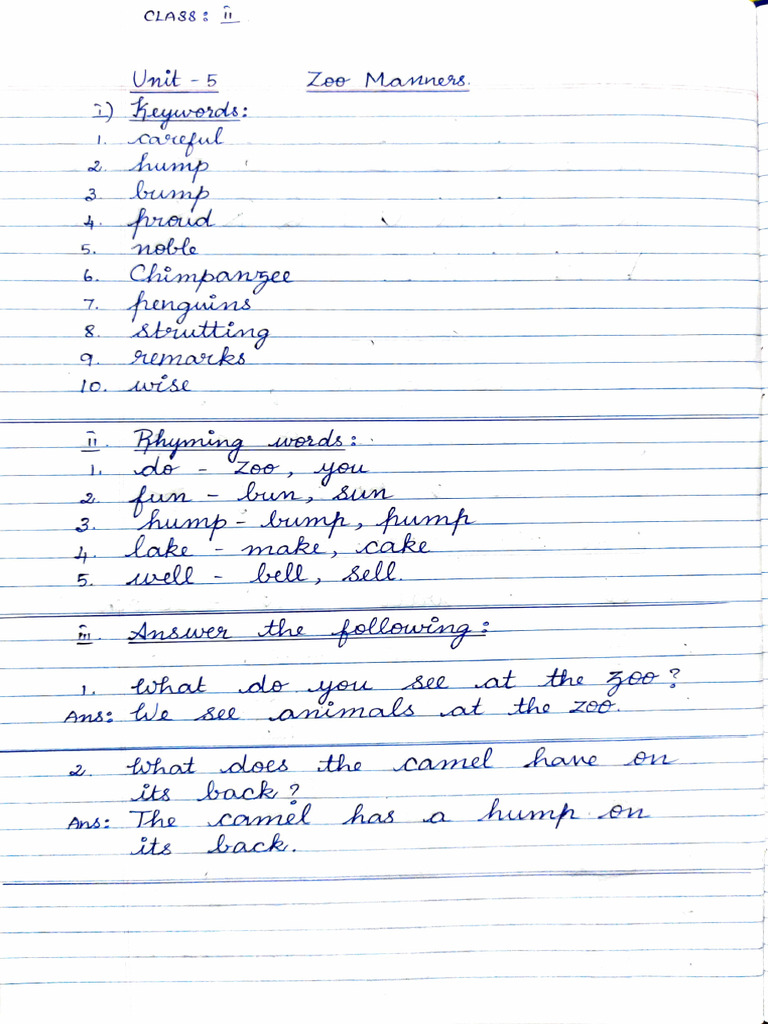 CLASS: II
Unit - 5 Zoo Manners.
i) Keywords:
1. careful
2. hump
3. bump
4. proud
5. noble
6. Chimpanzee
7. penguins
8. strutting
9. remarks
10. wise
II. Rhyming words:
1. do - zoo, you
2. fun - bun, sun
3. hump - bump, pump
4. lake - make, cake
5. well - bell, sell.
III. Answer the following:
1. What do you see at the zoo?
Ans: We see animals at the zoo.
2. What does the camel have on
its back?
Ans: The camel has a hump on
its back.